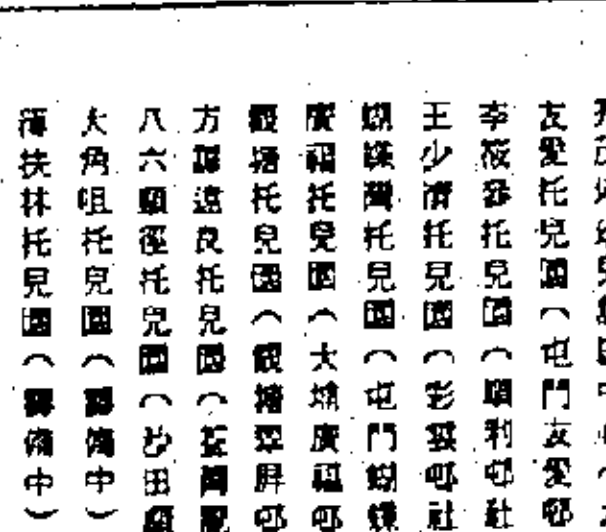 友愛托兒園（屯門友愛邨
李筱荍托兒園（順利邨社
王少清托兒園（彩雲邨社
蝴蝶灣托兒園（屯門蝴蝶
廣福托兒園（大埔廣福邨
觀塘托兒園（觀塘翠屏邨
方譚遠良托兒園（荃灣
八六順徑托兒園（沙田順
大角咀托兒園（籌備中）
薄扶林托兒園（籌備中）